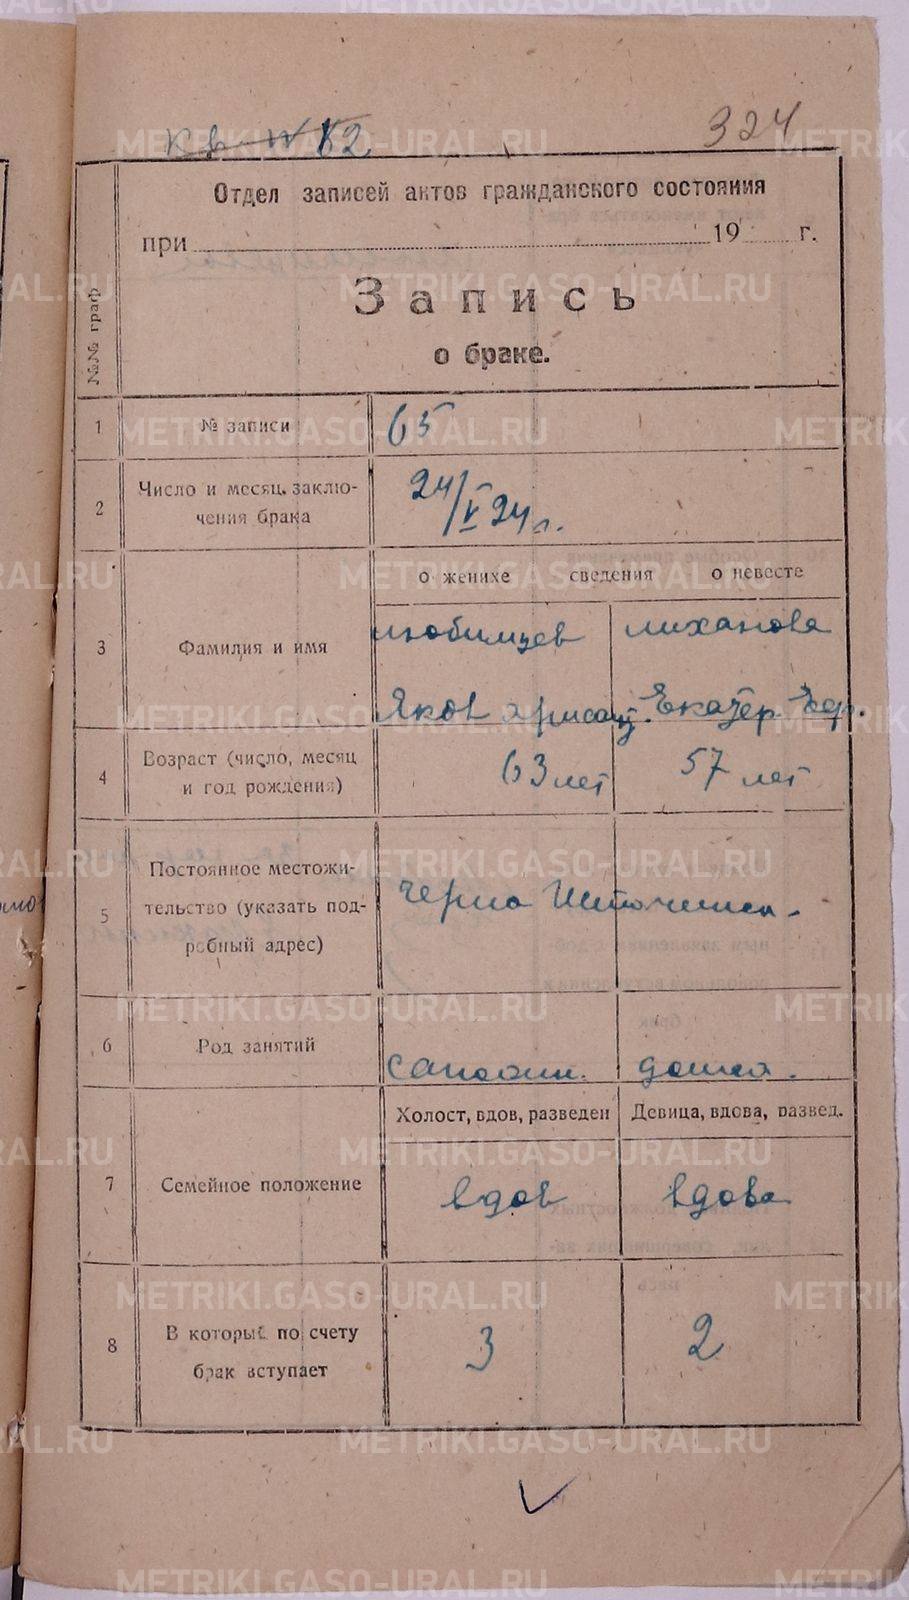 Кв. № 82
324
Отдел записей актов гражданского состояния
при 19 г.
Запись
о браке.
№№ граф
1 № записи 65
2 Число и месяц заклю-
чения брака
24/V 24 г.
о женихе сведения о невесте
3 Фамилия и имя
Любимцев Лиханова
Яков Екатер.
4 Возраст (число, месяц
и год рождения)
63 лет 57 лет
5 Постоянное местожи-
тельство (указать под-
робный адрес)
6 Род занятий
сапожн.
Холост, вдов, разведен Девица, вдова, развед.
7 Семейное положение
вдов вдова
8 В который по счету
брак вступает
3 2
METRIKI.GASO-URAL.RU